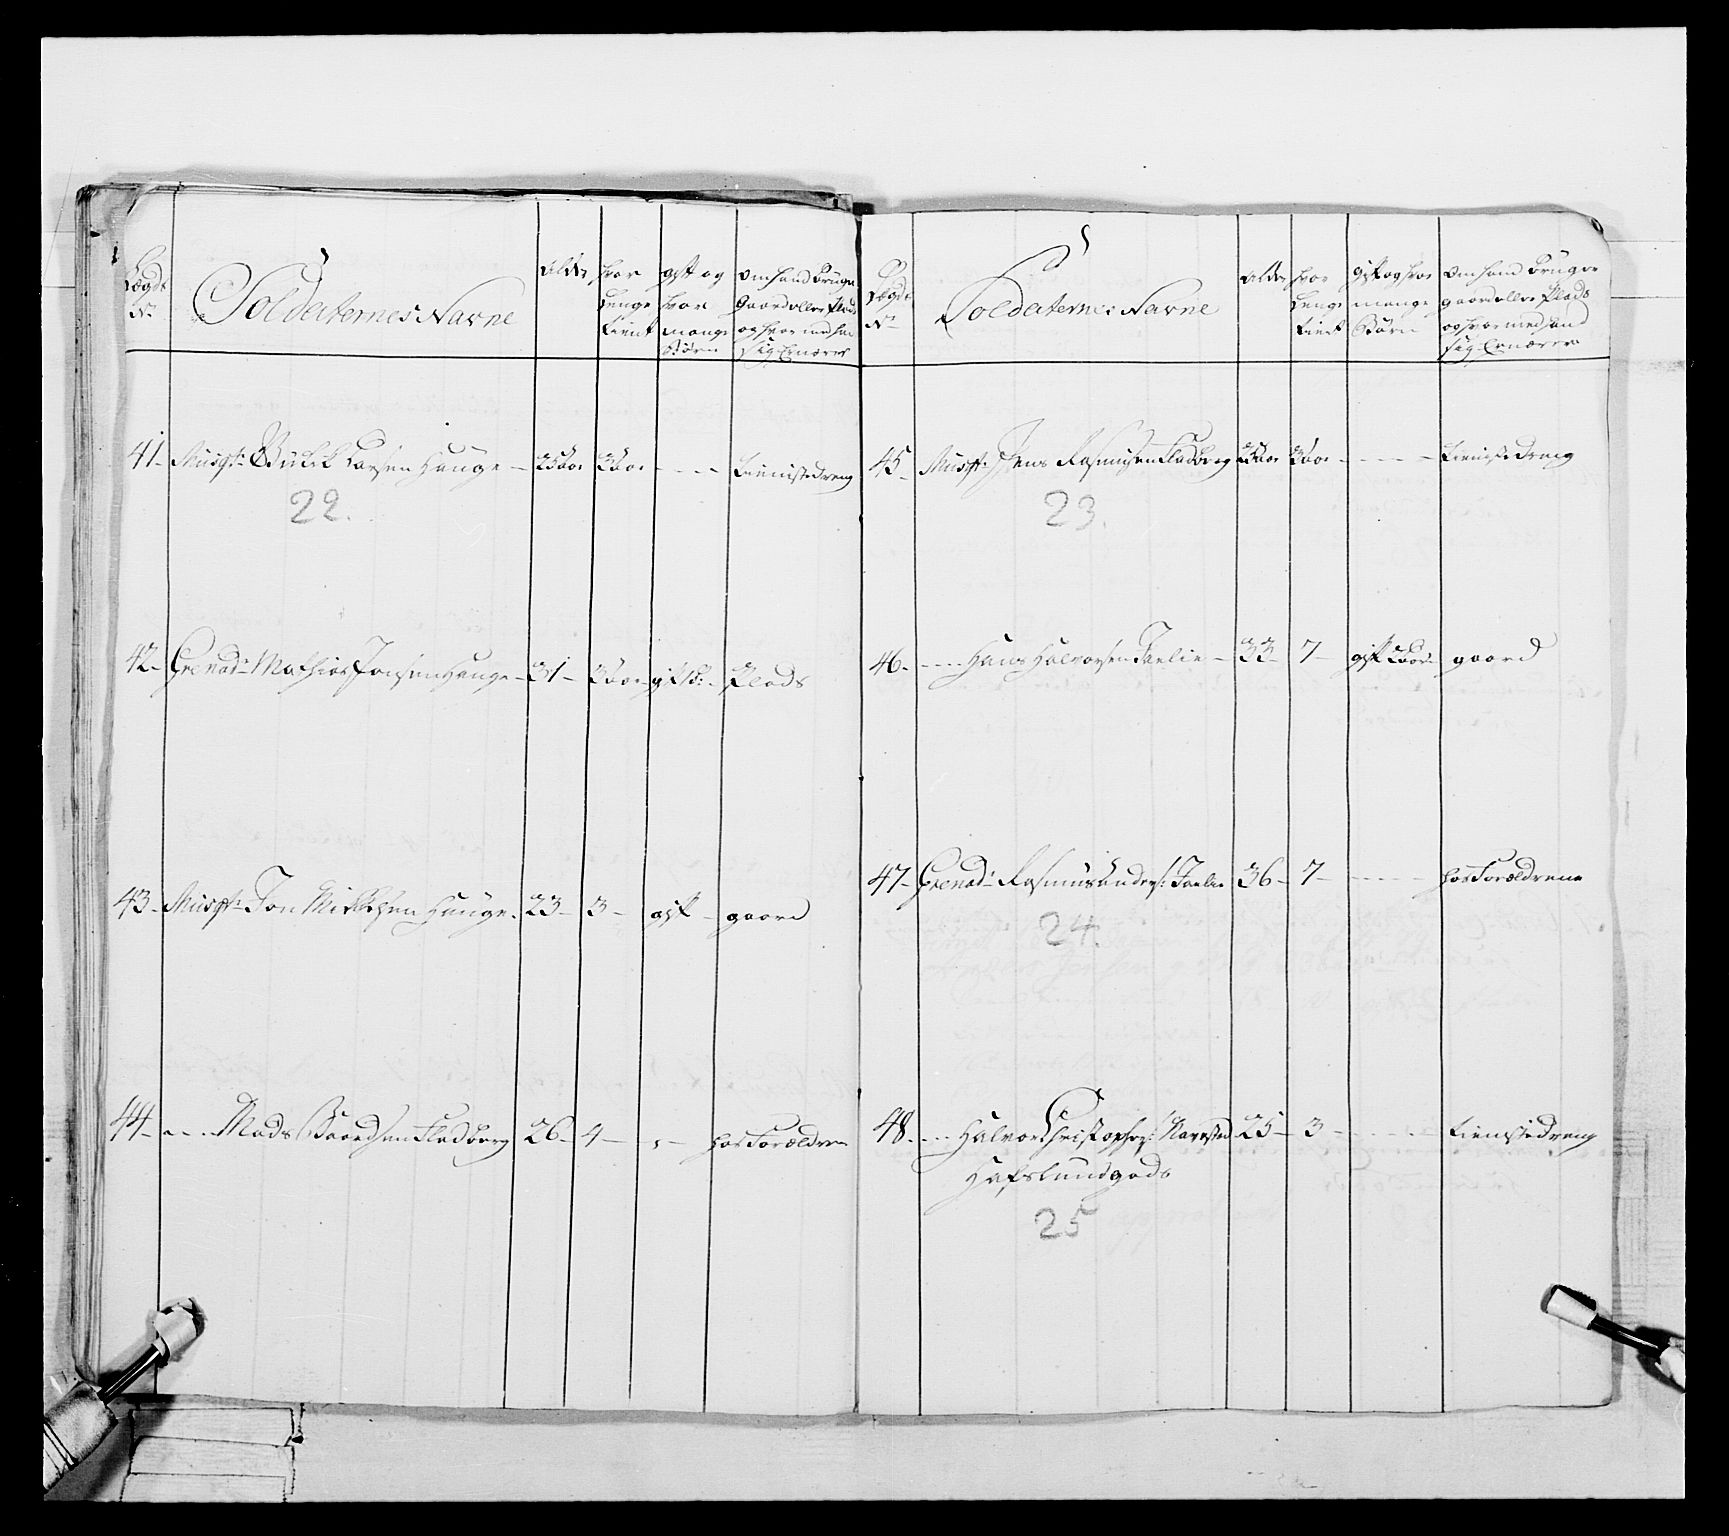 Lægds No
Soldaternes Navne
Alder
hvor længe tient
gift og hvor mange Børn
om hand bruger Gaard eller Plads og hvor med hand sig Ernærer
41 Musqt: Larsen Hauge 25 Aar 3 Aar tienistedreng
22.
42 Grenad: Mathias Jonsen Hauge 31 3 Aar gift Plads
43 Musqt: Jon Mikkelsen Hauge 23 3 gift gaard
44 Mads Baardsen Fladberg 26 4 hos Forældrene
Lægds No
Soldaternes Navne
Alder
hvor længe tient
gift og hvor mange Børn
om hand bruger gaard eller Plads og hvor med hand sig Ernærer
45 Musqt: Jens Rasmusen Fladberg 3 Aar tienistedreng
23.
46 Hans Halvorsen 33 7 gift gaard
47 Grenad: Rasmus Anders: 36 7 hos Forældrene
24.
48 Halvor Christophers: 25 3 tienistedreng
Hafslundgods
25